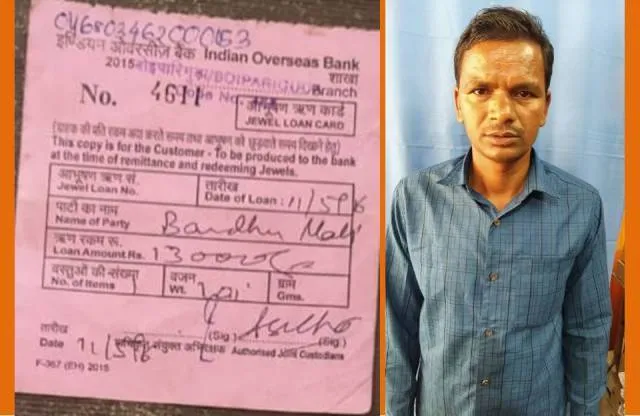 046803462000053
इण्डियन ओवरसीज़ बैंक Indian Overseas Bank
2015 बोइपारिगुडा/BOIPARIGUDA शाखा
Branch
No. 4611
आभूषण ऋण कार्ड
JEWEL LOAN CARD
(ग्राहक की प्रति रकम अदा करते समय तथा आभूषण को छुड़वाते समय दिखाने हेतु)
This copy is for the Customer - To be produced to the bank
at the time of remittance and redeeming Jewels.
आभूषण ऋण सं. तारीख
Jewel Loan No. Date of Loan :
पार्टी का नाम
Name of Party Bandhu Mali
ऋण रकम रू.
Loan Amount Rs. 13000
वस्तुओं की संख्या वजन ग्राम
No. of Items Wt. Gms.
(Sig.) (Sig.)
तारीख संयुक्त
Date Authorised Joint Custodians
F-367 (EH) 2015